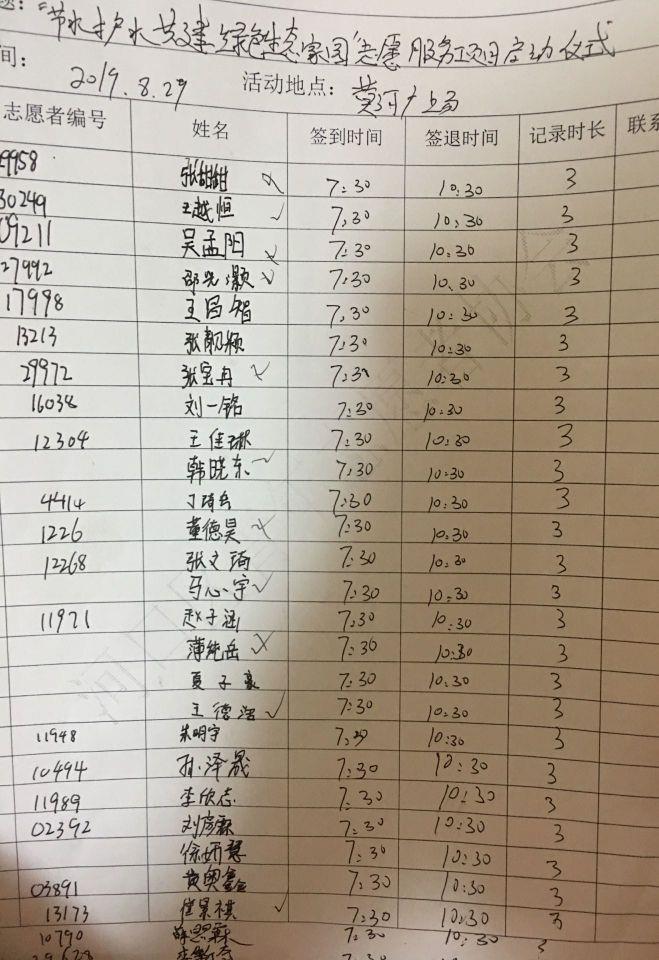 题:“节水护水 共建绿色生态家园”志愿服务项目启动仪式
间: 2019.8.29 活动地点: 黄河广场
志愿者编号 姓名 签到时间 签退时间 记录时长 联系
29958 张甜甜 7:30 10:30 3
30249 王越恒 7:30 10:30 3
09211 吴孟阳 7:30 10:30 3
27992 邵光灏 7:30 10:30 3
17998 王昌智 7:30 10:30 3
13213 张靓颖 7:30 10:30 3
29972 张宝冉 7:30 10:30 3
16038 刘一铭 7:30 10:30 3
12304 王佳琳 7:30 10:30 3
韩晓东 7:30 10:30 3
4414 丁琦岳 7:30 10:30 3
1226 董德昊 7:30 10:30 3
12268 张文琦 7:30 10:30 3
马心宇 7:30 10:30 3
11971 赵子涵 7:30 10:30 3
薄纯岳 7:30 10:30 3
夏子豪 7:30 10:30 3
王德 7:30 10:30 3
11948 朱明宇 7:30 10:30 3
10494 孙泽晟 7:30 10:30 3
11989 李欣志 7:30 10:30 3
02392 刘彦霖 7:30 10:30 3
徐妍慧 7:30 10:30 3
03891 黄奥鑫 7:30 10:30 3
13173 崔景祺 7:30 10:30 3
10790 薛思 7:30 10:30 3
29628